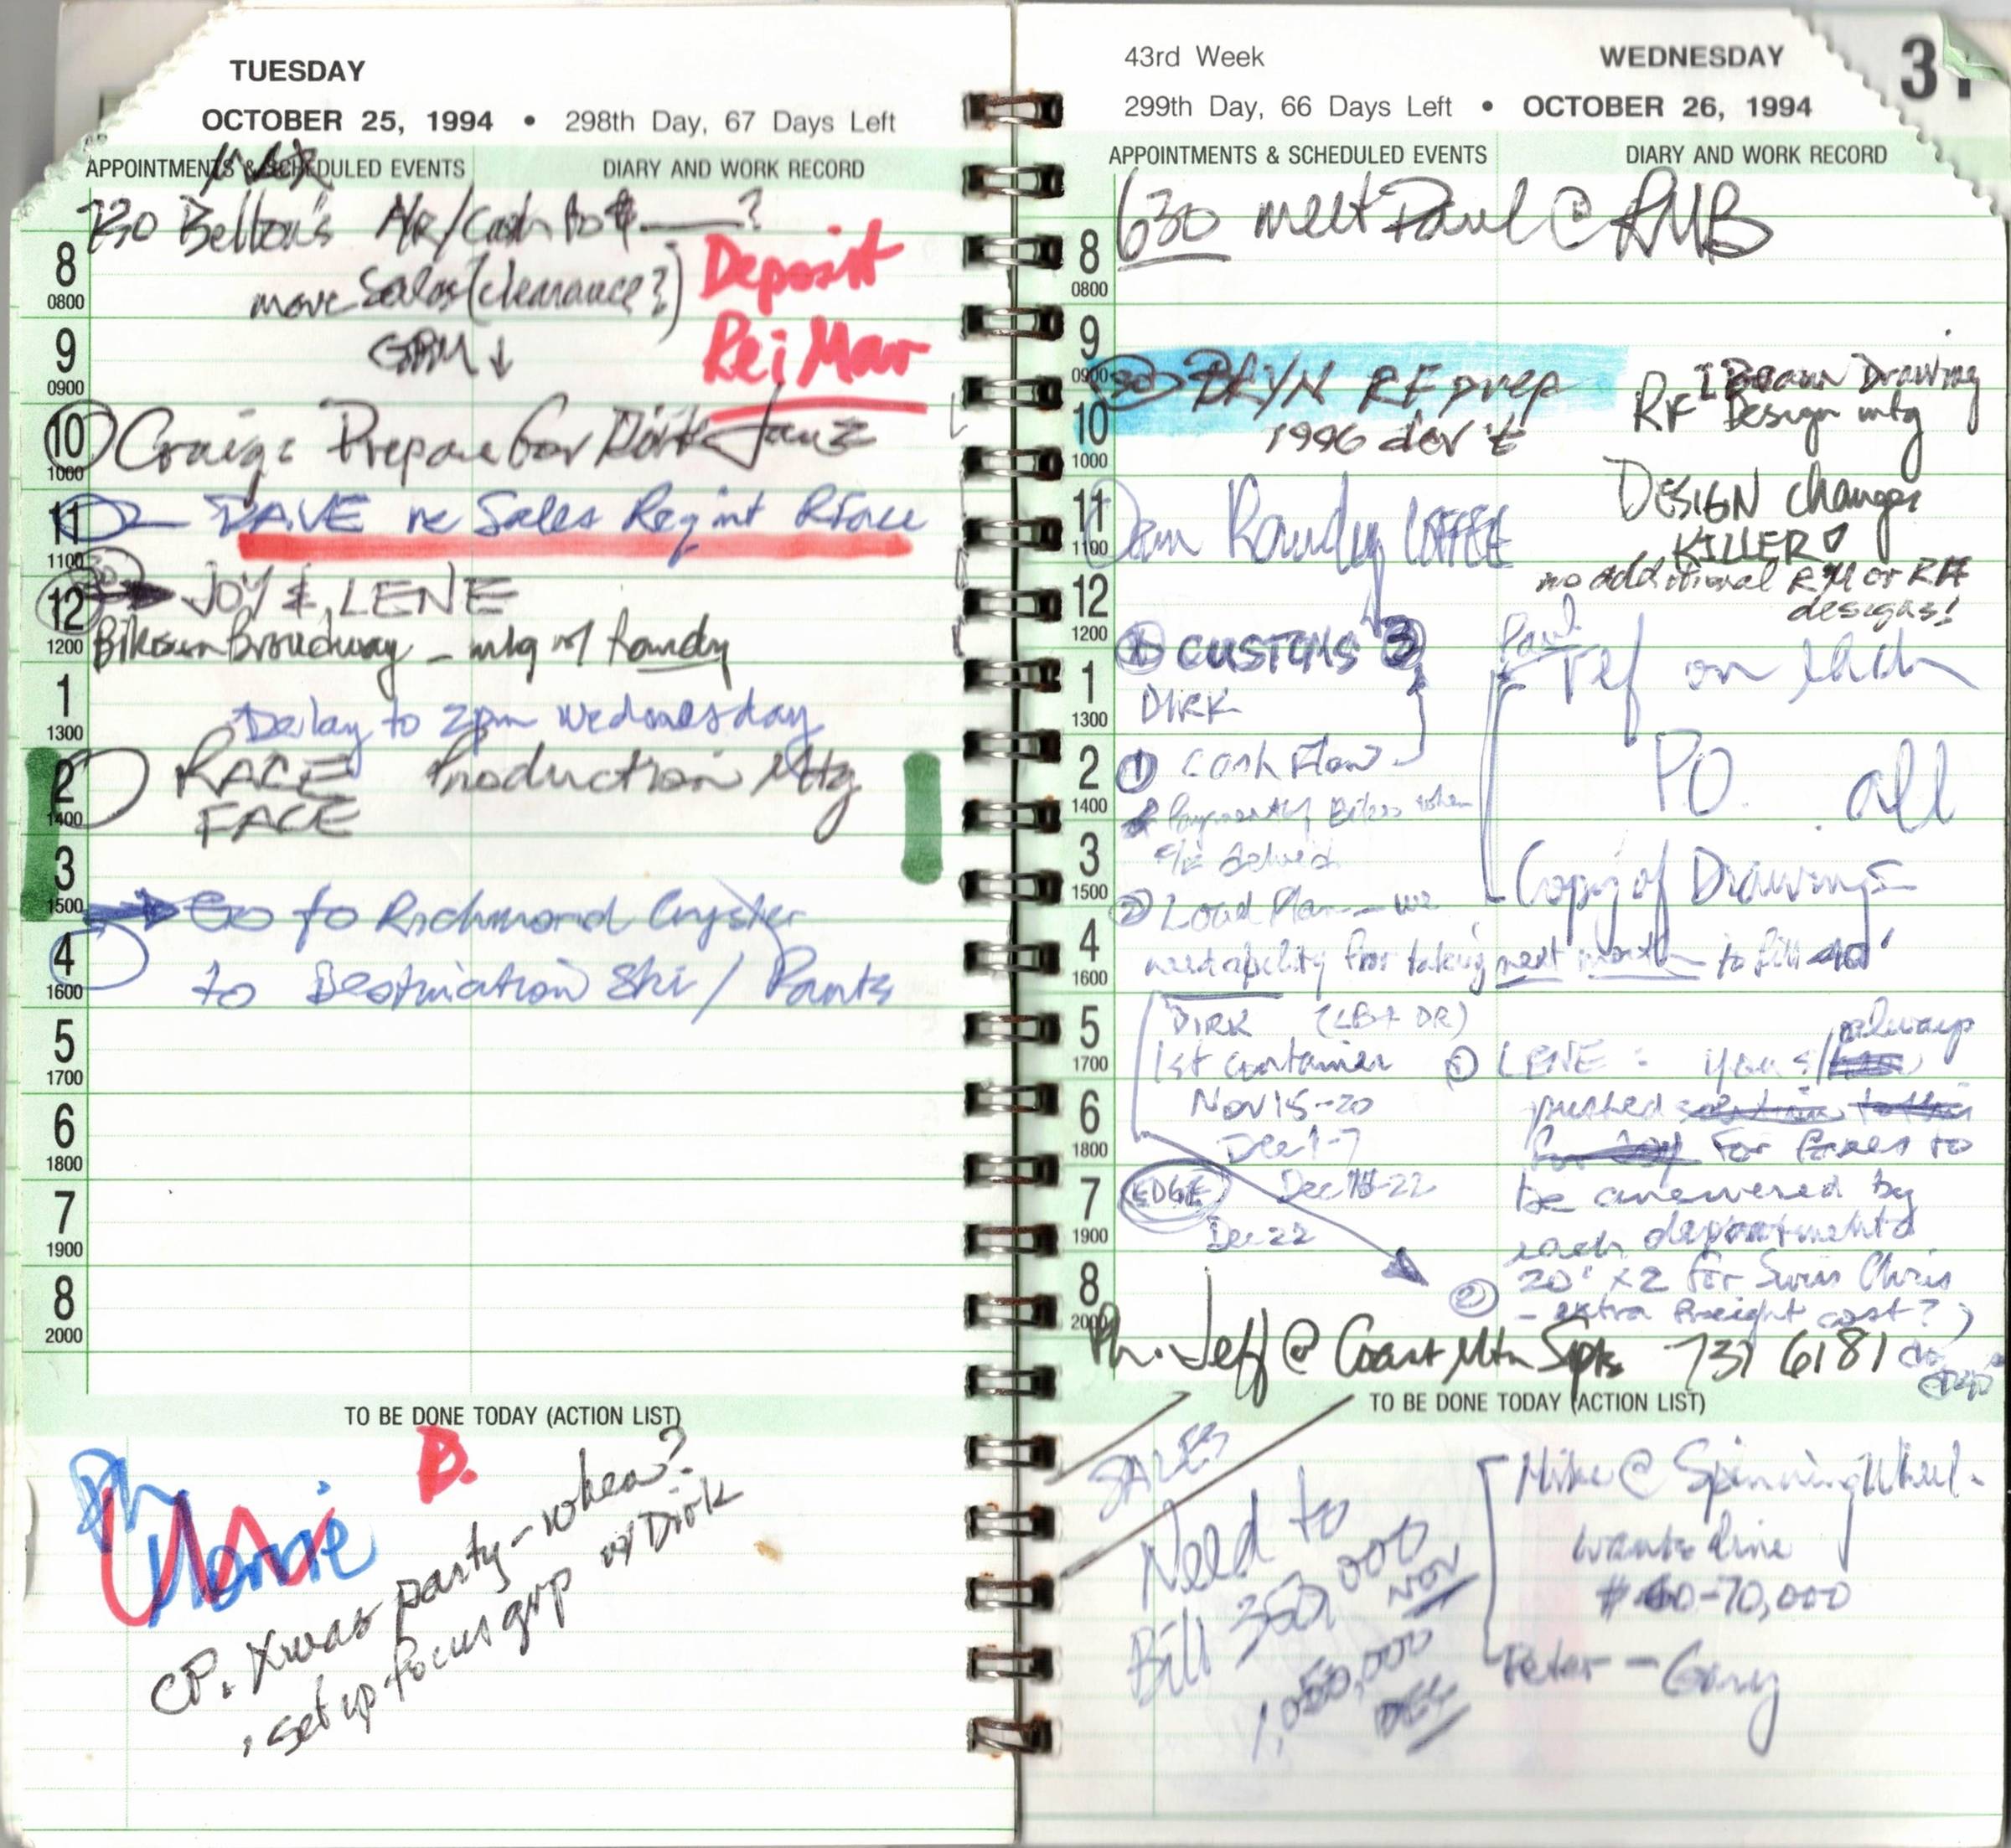 TUESDAY
OCTOBER 25, 1994 • 298th Day, 67 Days Left
APPOINTMENTS & SCHEDULED EVENTS
DIARY AND WORK RECORD
730 Belton's A/R/Cash to $ ——?
move Sales (clearance?)
GPM ↓
Deposit
Rei Mar
8
0800
9
0900
10
1000
Craig: Prepare for Dirk Janz
11
1100
DAVE re Sales Reg mt RFace
12
1200
JOY & LENE
Broadway - mtg w/ Randy
1
1300
Delay to 2pm Wednesday
2
1400
RACE Production Mtg
FACE
3
1500
Go to Richmond
4
1600
to Destination Ski / Pants
5
1700
6
1800
7
1900
8
2000
TO BE DONE TODAY (ACTION LIST)
Ph
B.
CP. Xmas party - when?
, set up focus grp w/ Dirk
43rd Week
WEDNESDAY
299th Day, 66 Days Left • OCTOBER 26, 1994
31
APPOINTMENTS & SCHEDULED EVENTS
DIARY AND WORK RECORD
630 meet Paul @
8
0800
9
0900
BRYN RF prep
1996 dev't
I Beam Drawing
RF Design mtg
10
1000
DESIGN changes
KILLER
no additional RM or RF
designs!
11
1100
Randy COFFEE
12
1200
CUSTOMS 3
DIRK
Paul
ref on each
PO. all
Copy of Drawings
1
1300
2
1400
1 Cash Flow
Payment of Bikes when
3
1500
2 Load Plan - we
4
1600
need ability for taking next month to fill 40'
5
1700
DIRK (LB + DR)
1st container
Nov 15-20
Dec 1-7
Dec 15-22
Dec 22
EDGE
6
1800
7
1900
8
2000
LENE: you always
pushed
for faxes to
be answered by
each department
2 20' x 2 for Swiss Chris
- extra freight cost?)
Ph. Jeff @ Coast Mtn Spts 731 6181
TO BE DONE TODAY (ACTION LIST)
SALES
Need to
Bill 350,000
NOV
1,050,000
DEC
Mike @ Spinning Wheel -
wants line
$ 60-70,000
Peter - Gary